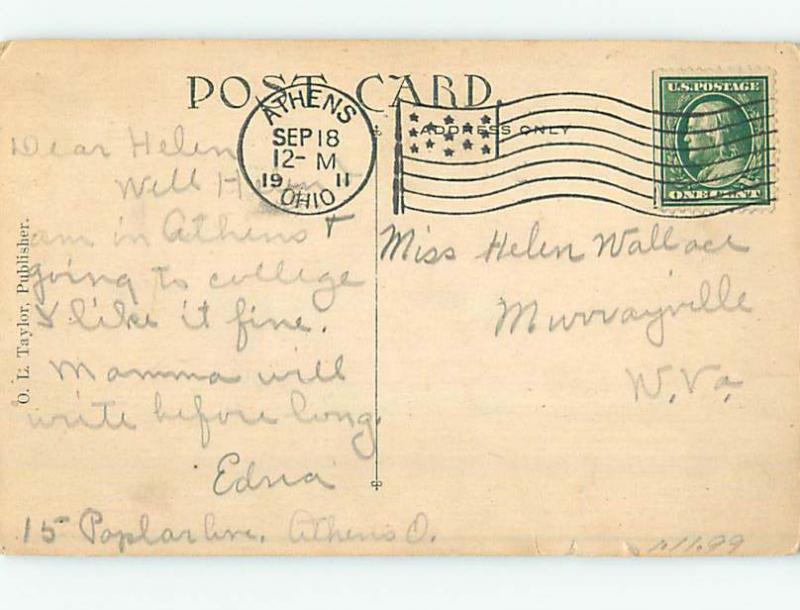 POST CARD
ATHENS
SEP 18
12- M
19 11
OHIO
ADDRESS ONLY
U.S. POSTAGE
ONE CENT
Dear Helen
Well
am in Athens +
going to college
& like it fine.
Mamma will
write before long.
Edna
15 Poplar Ave. Athens O.
Miss Helen Wallace
Murrayville
W. Va.
O. L. Taylor, Publisher.